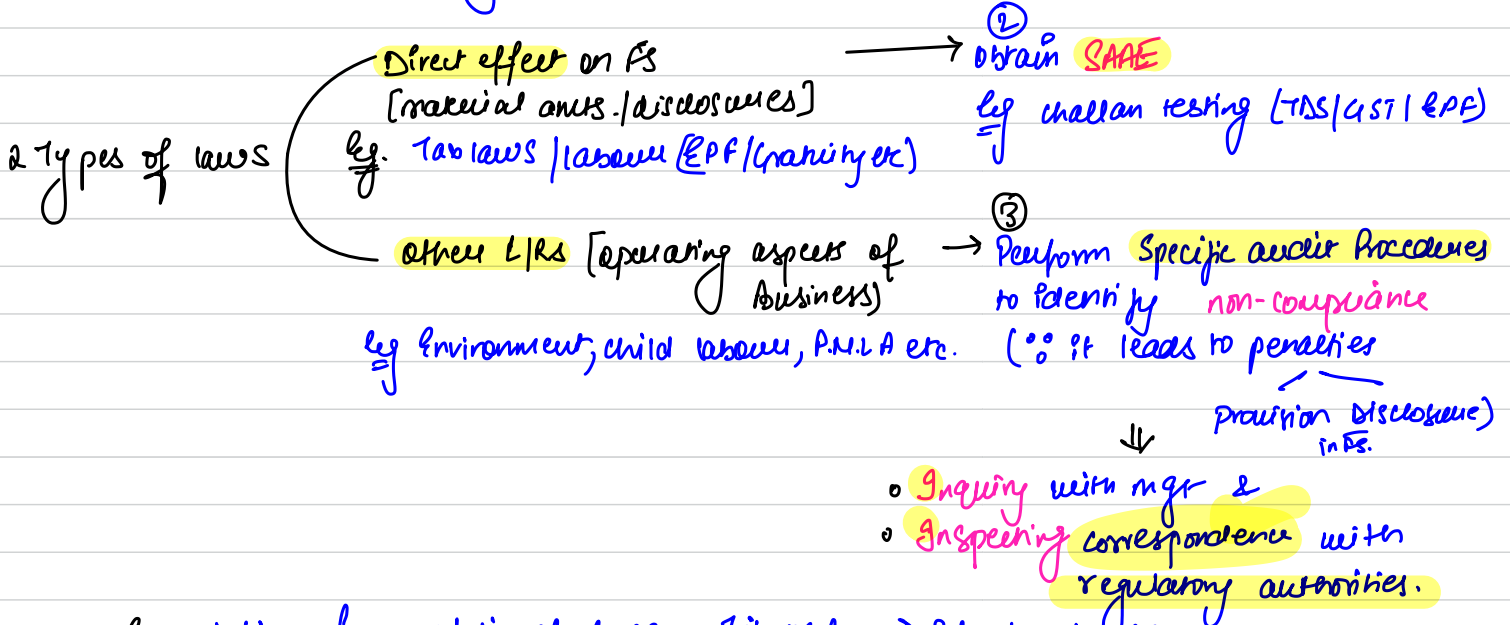 2 Types of laws
Direct effect on FS
[material amts./disclosures]
Eg. Tax laws/labour (EPF/Gratuity etc)
→ ②
Obtain SAAE
Eg challan testing (TDS/GST/EPF)
Other L/Rs [operating aspects of
business)
Eg Environment, child labour, P.M.L.A etc.
→ ③
Perform Specific audit Procedures
to identify non-compliance
(∵ it leads to penalties
provision Disclosure)
in FS.
⇓
• Inquiry with mgt &
• Inspecting correspondence with
regulatory authorities.